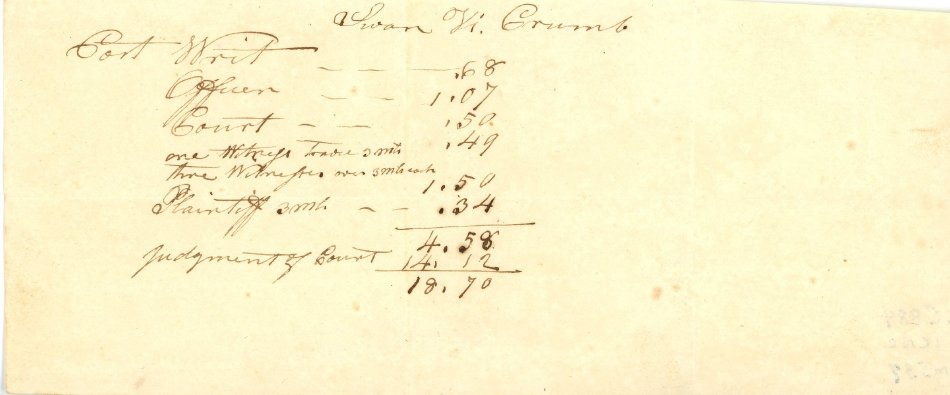 Swan Vs. Crumb
Cost Writ — — — .68
Officer — — 1.07
Court — — .50
one Witness travel 3 mls .49
three Witnesses over 3 mls each 1.50
Plaintiff 3 mls — — .34
4.58
Judgment of Court 14.12
18.70